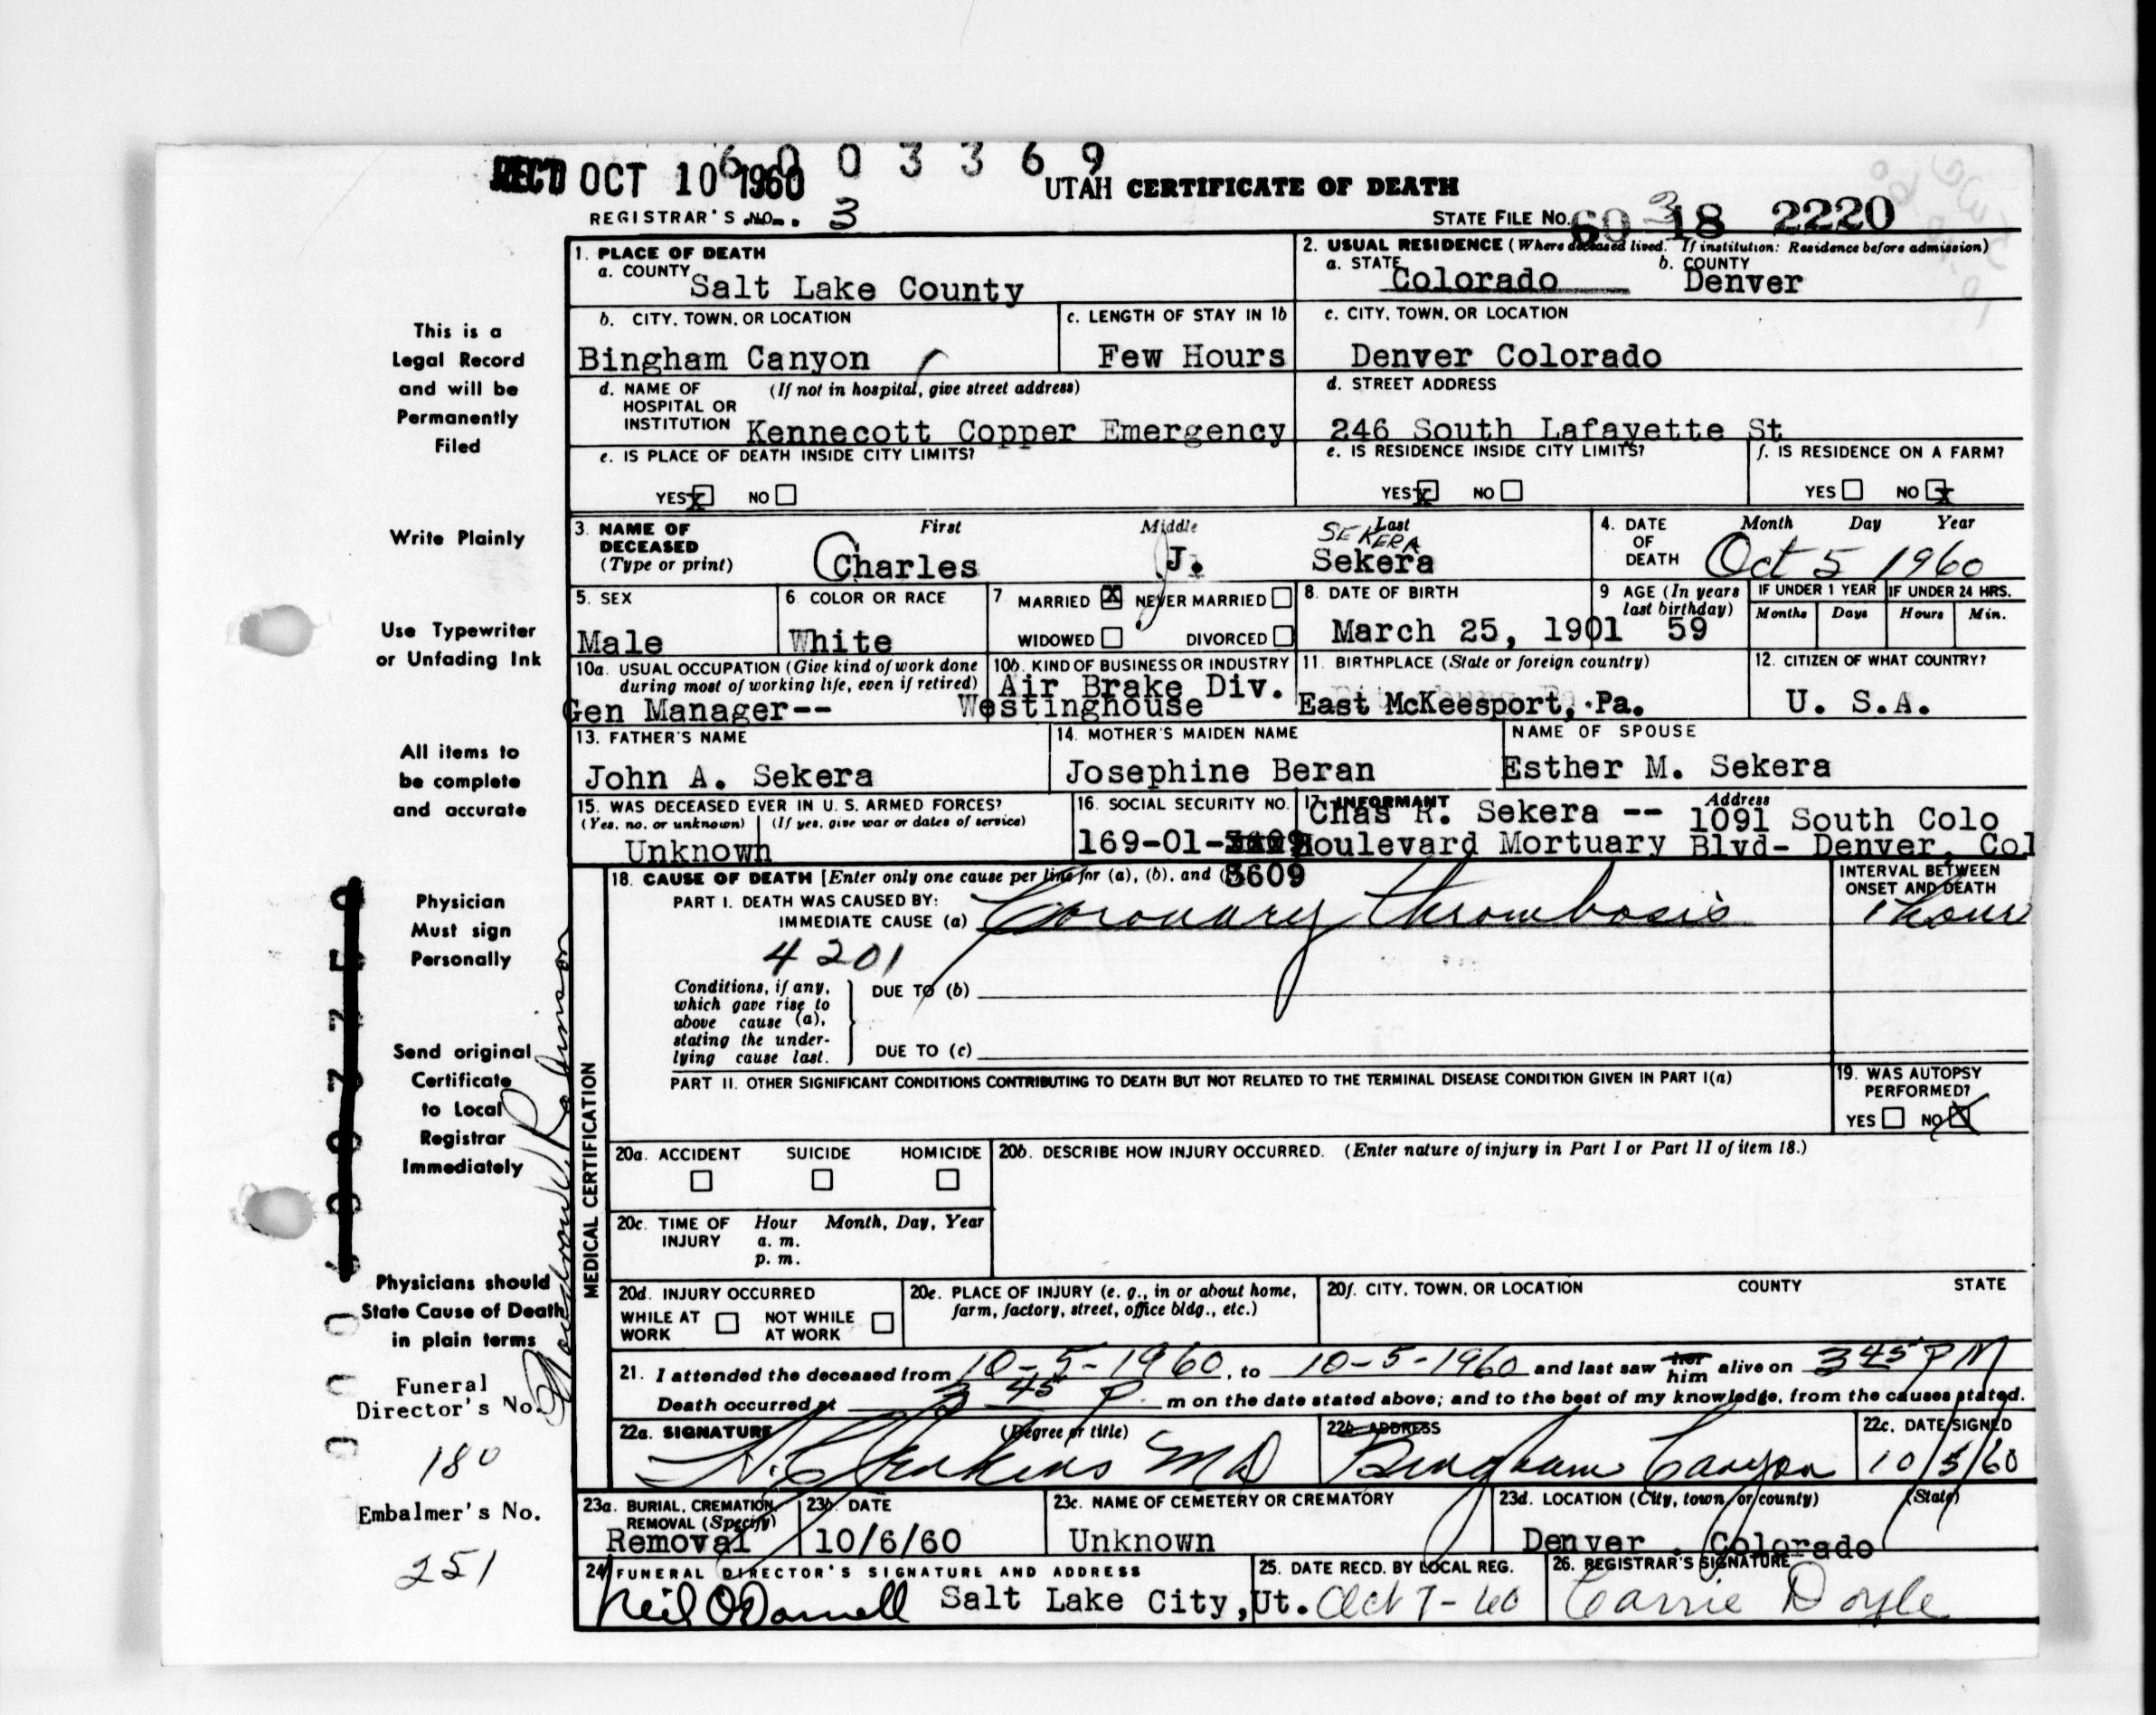 6 0 0 3 3 6 9
REC'D OCT 10 1960
UTAH CERTIFICATE OF DEATH
REGISTRAR'S NO. 3
STATE FILE No. 60 18 2220
3
1. PLACE OF DEATH
a. COUNTY Salt Lake County
2. USUAL RESIDENCE (Where deceased lived. If institution: Residence before admission)
a. STATE Colorado b. COUNTY Denver
b. CITY, TOWN, OR LOCATION Bingham Canyon
c. LENGTH OF STAY IN 1b Few Hours
c. CITY, TOWN, OR LOCATION Denver Colorado
d. NAME OF HOSPITAL OR INSTITUTION (If not in hospital, give street address) Kennecott Copper Emergency
d. STREET ADDRESS 246 South Lafayette St
e. IS PLACE OF DEATH INSIDE CITY LIMITS? YES x NO
e. IS RESIDENCE INSIDE CITY LIMITS? YES x NO
f. IS RESIDENCE ON A FARM? YES NO x
3. NAME OF DECEASED (Type or print) First Charles Middle J. Last SEKERA Sekera
4. DATE OF DEATH Month Day Year Oct 5 1960
5. SEX Male
6. COLOR OR RACE White
7. MARRIED X NEVER MARRIED WIDOWED DIVORCED
8. DATE OF BIRTH March 25, 1901
9 AGE (In years last birthday) 59
IF UNDER 1 YEAR Months Days
IF UNDER 24 HRS. Hours Min.
10a. USUAL OCCUPATION (Give kind of work done during most of working life, even if retired) Gen Manager--
10b. KIND OF BUSINESS OR INDUSTRY Air Brake Div. Westinghouse
11. BIRTHPLACE (State or foreign country) East McKeesport, Pa.
12. CITIZEN OF WHAT COUNTRY? U. S.A.
13. FATHER'S NAME John A. Sekera
14. MOTHER'S MAIDEN NAME Josephine Beran
NAME OF SPOUSE Esther M. Sekera
15. WAS DECEASED EVER IN U. S. ARMED FORCES? (Yes, no, or unknown) (If yes, give war or dates of service) Unknown
16. SOCIAL SECURITY NO. 169-01-
3609
17. INFORMANT Address
Chas R. Sekera -- 1091 South Colo
Boulevard Mortuary Blvd- Denver, Col
MEDICAL CERTIFICATION
18. CAUSE OF DEATH [Enter only one cause per line for (a), (b), and
PART I. DEATH WAS CAUSED BY:
IMMEDIATE CAUSE (a) Coronary thrombosis
INTERVAL BETWEEN ONSET AND DEATH 1 hour
4201
Conditions, if any, which gave rise to above cause (a), stating the underlying cause last.
DUE TO (b)
DUE TO (c)
PART II. OTHER SIGNIFICANT CONDITIONS CONTRIBUTING TO DEATH BUT NOT RELATED TO THE TERMINAL DISEASE CONDITION GIVEN IN PART I(a)
19. WAS AUTOPSY PERFORMED? YES NO X
20a. ACCIDENT SUICIDE HOMICIDE
20b. DESCRIBE HOW INJURY OCCURRED. (Enter nature of injury in Part I or Part II of item 18.)
20c. TIME OF INJURY Hour Month, Day, Year
a. m.
p. m.
20d. INJURY OCCURRED
WHILE AT WORK NOT WHILE AT WORK
20e. PLACE OF INJURY (e. g., in or about home, farm, factory, street, office bldg., etc.)
20f. CITY, TOWN, OR LOCATION COUNTY STATE
21. I attended the deceased from 10-5-1960, to 10-5-1960 and last saw her him alive on 3 45 PM
Death occurred at 3 45 P m on the date stated above; and to the best of my knowledge, from the causes stated.
22a. SIGNATURE (Degree or title) Jenkins MD
22b. ADDRESS Bingham Canyon
22c. DATE SIGNED 10/5/60
23a. BURIAL, CREMATION, REMOVAL (Specify) Removal
23b. DATE 10/6/60
23c. NAME OF CEMETERY OR CREMATORY Unknown
23d. LOCATION (City, town, or county) (State) Denver . Colorado
24 FUNERAL DIRECTOR'S SIGNATURE AND ADDRESS Neil O'Donnell Salt Lake City, Ut.
25. DATE RECD. BY LOCAL REG. Oct 7-60
26. REGISTRAR'S SIGNATURE Carrie Doyle
This is a
Legal Record
and will be
Permanently
Filed
Write Plainly
Use Typewriter
or Unfading Ink
All items to
be complete
and accurate
Physician
Must sign
Personally
Send original
Certificate
to Local
Registrar
Immediately
Physicians should
State Cause of Death
in plain terms
Funeral
Director's No.
180
Embalmer's No.
251